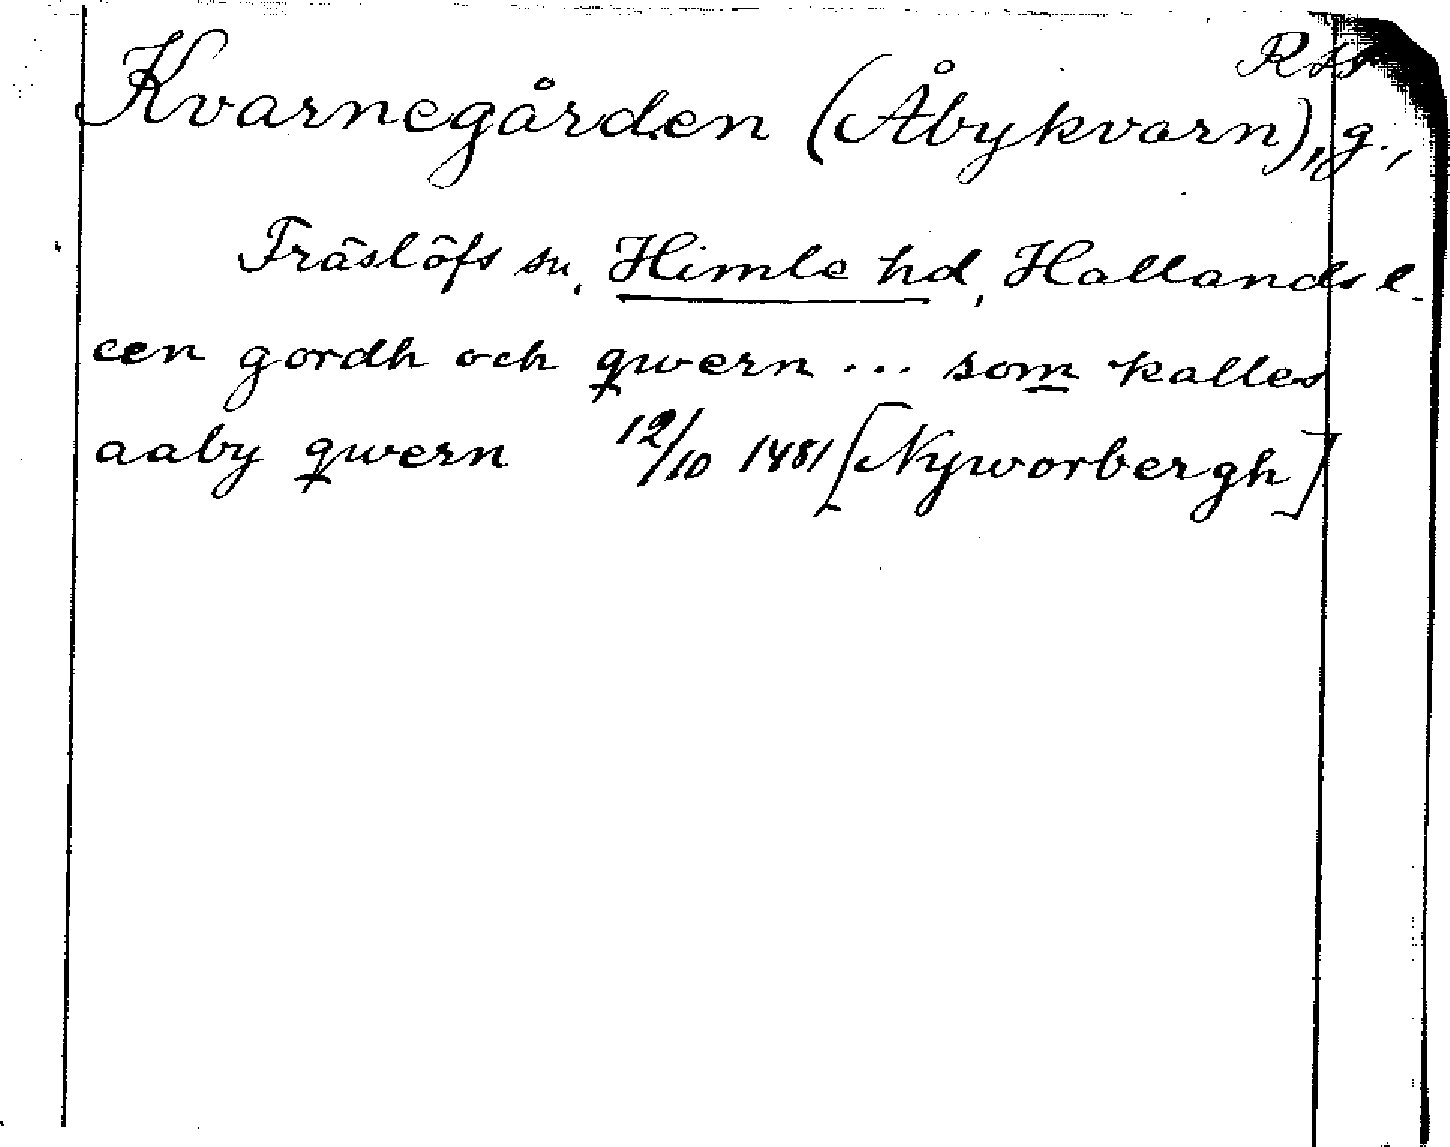 Kvarnegården (Åbykvarn), g.,
Träslöfs sn, Himle hd, Hallands l.
een gordh och qwern ... som kalles
aaby qwern 12/10 1481 [Nyworbergh]